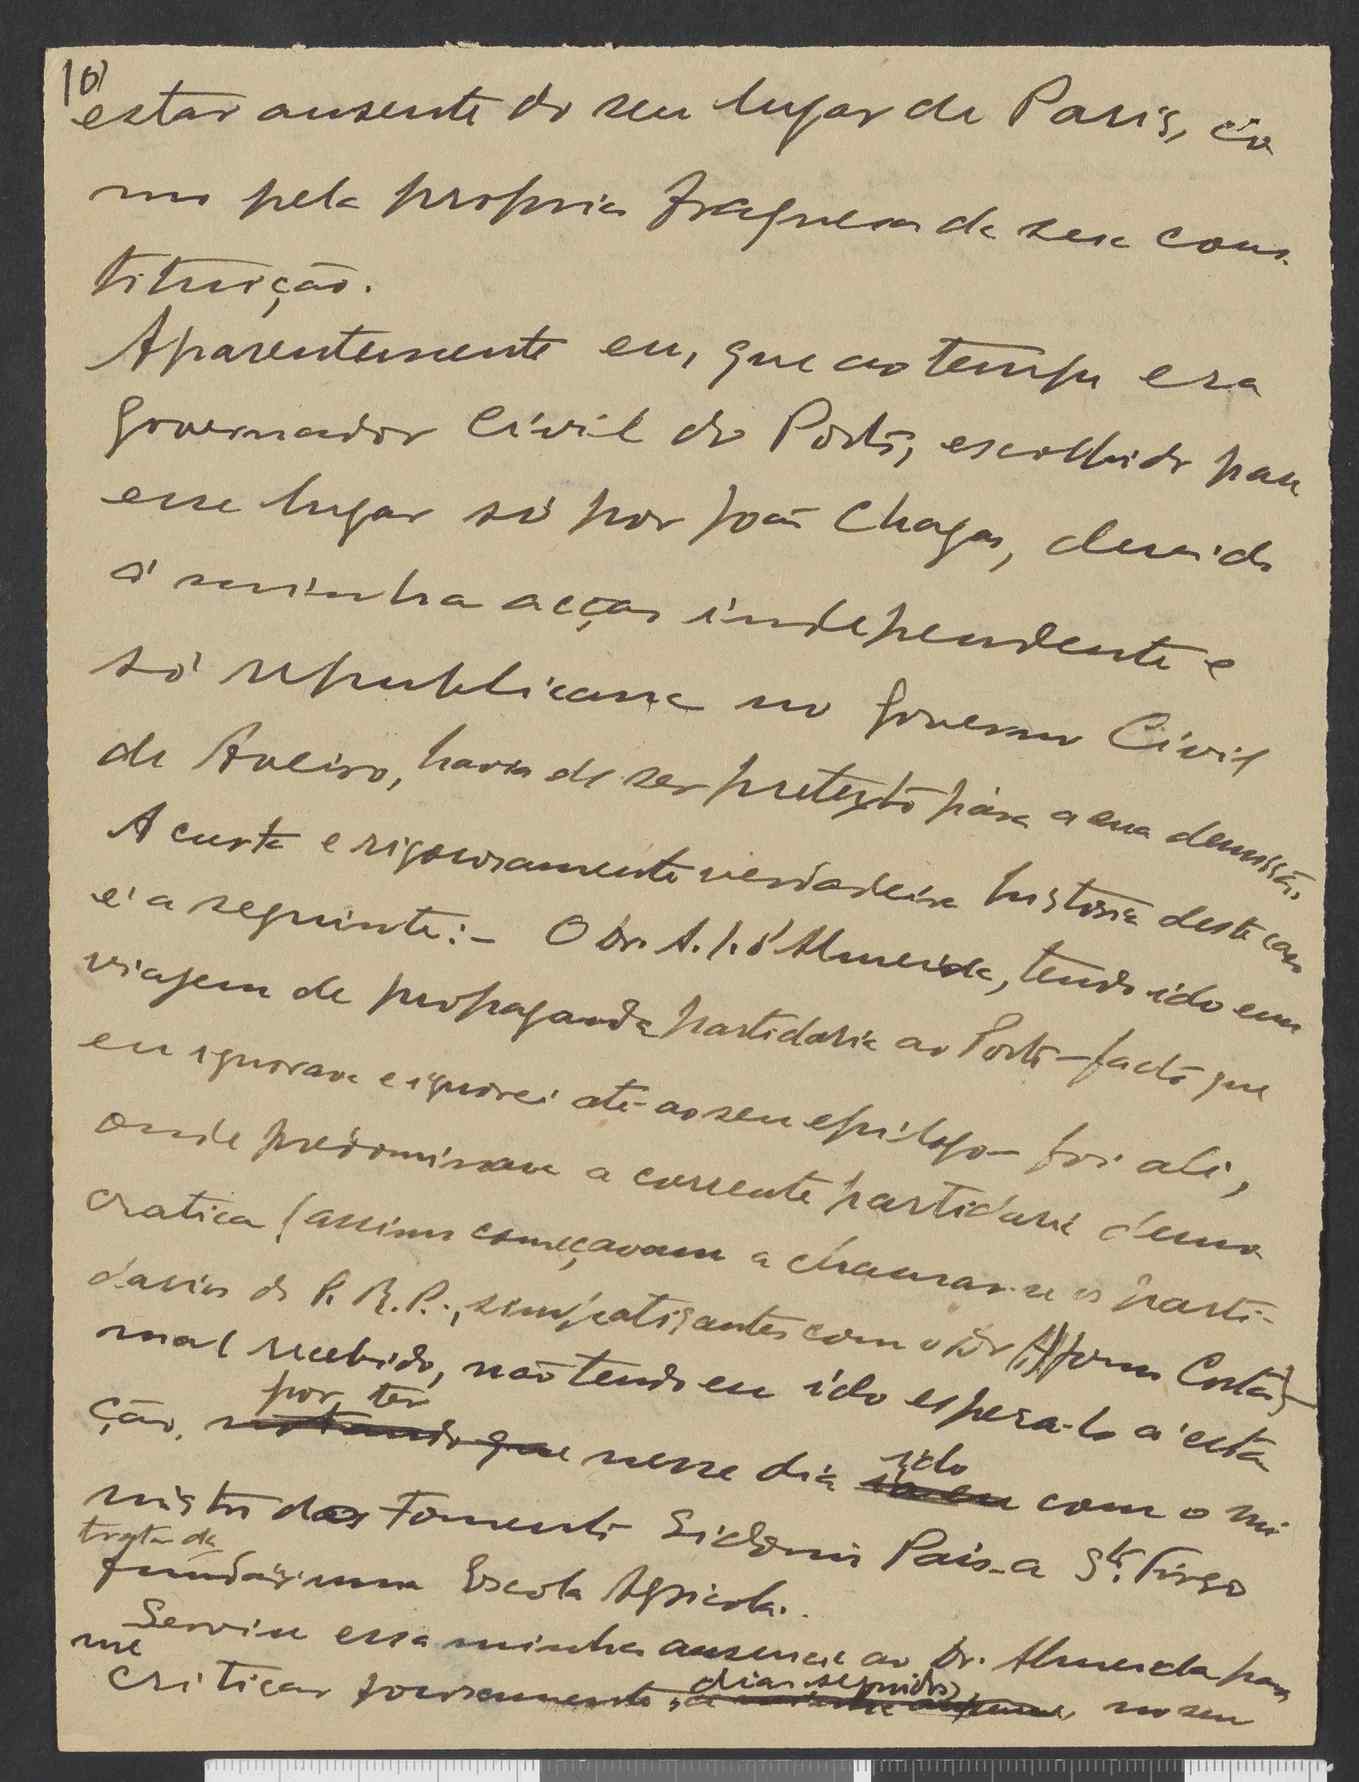 10)
estar ausente do seu lugar de Paris, co
mo pela propria fraquesa de sua cons-
tituição.
Aparentemente eu, que ao tempo era
Governador Civil do Porto, escolhido para
esse lugar só por João Chagas, devido
á minha acção independente e
só republicana no Governo Civil
de Aveiro, havia de ser pretexto para a sua demissão.
A curta e rigorosamente verdadeira historia deste caso
é a seguinte:- O Dr. A. J. d'Almeida, tendo ido em
viagem de propaganda partidaria ao Porto - facto que
eu ignorava e ignorei até ao seu epilogo - foi ali,
onde predominava a corrente partidaria demo
cratica (assim começavam a chamar-se os parti-
darios do P. R. P., simpatisantes com o Dr Affonso Costa) -
mal recebido, não tendo eu ido espera-lo á esta
ção, por ter
nesse dia ido com o mi
nistro do Fomento Sidonio Pais a Stº. Tirso
trata de
fundar uma Escola Agricola.
Serviu essa minha ausencia ao Dr. Almeida para
me
criticar furiosamente, dias seguidos, no seu